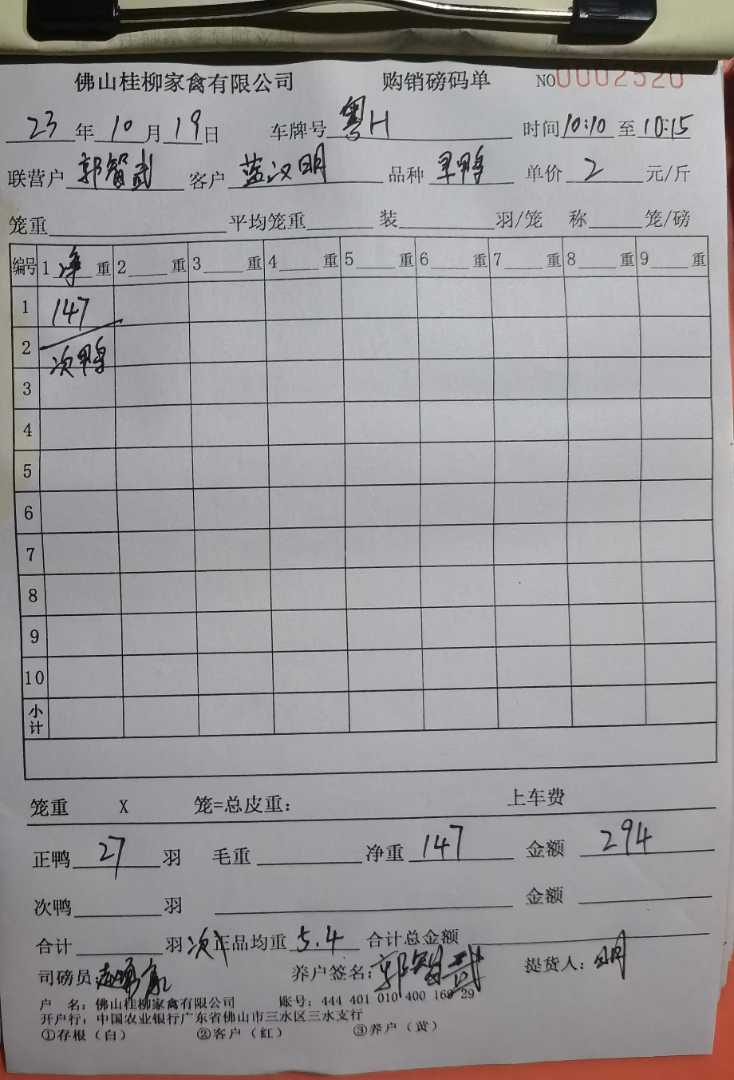 佛山桂柳家禽有限公司 购销磅码单 NO0002520
23年10月19日 车牌号粤H 时间10:10至10:15
联营户郭智武 客户蓝汉明 品种旱鸭 单价2元/斤
笼重 平均笼重 装 羽/笼 称 笼/磅
编号 1净重 2 重 3 重 4 重 5 重 6 重 7 重 8 重 9 重
1 147
2 次鸭
3
4
5
6
7
8
9
10
小计
笼重 X 笼=总皮重: 上车费
正鸭27羽 毛重 净重147 金额294
次鸭 羽 金额
合计 羽 次 正品均重5.4 合计总金额
司磅员: 养户签名:郭智武 提货人:明
户 名: 佛山桂柳家禽有限公司 账号: 444 401 010 400 169 29
开户行: 中国农业银行广东省佛山市三水区三水支行
①存根(白) ②客户(红) ③养户(黄)